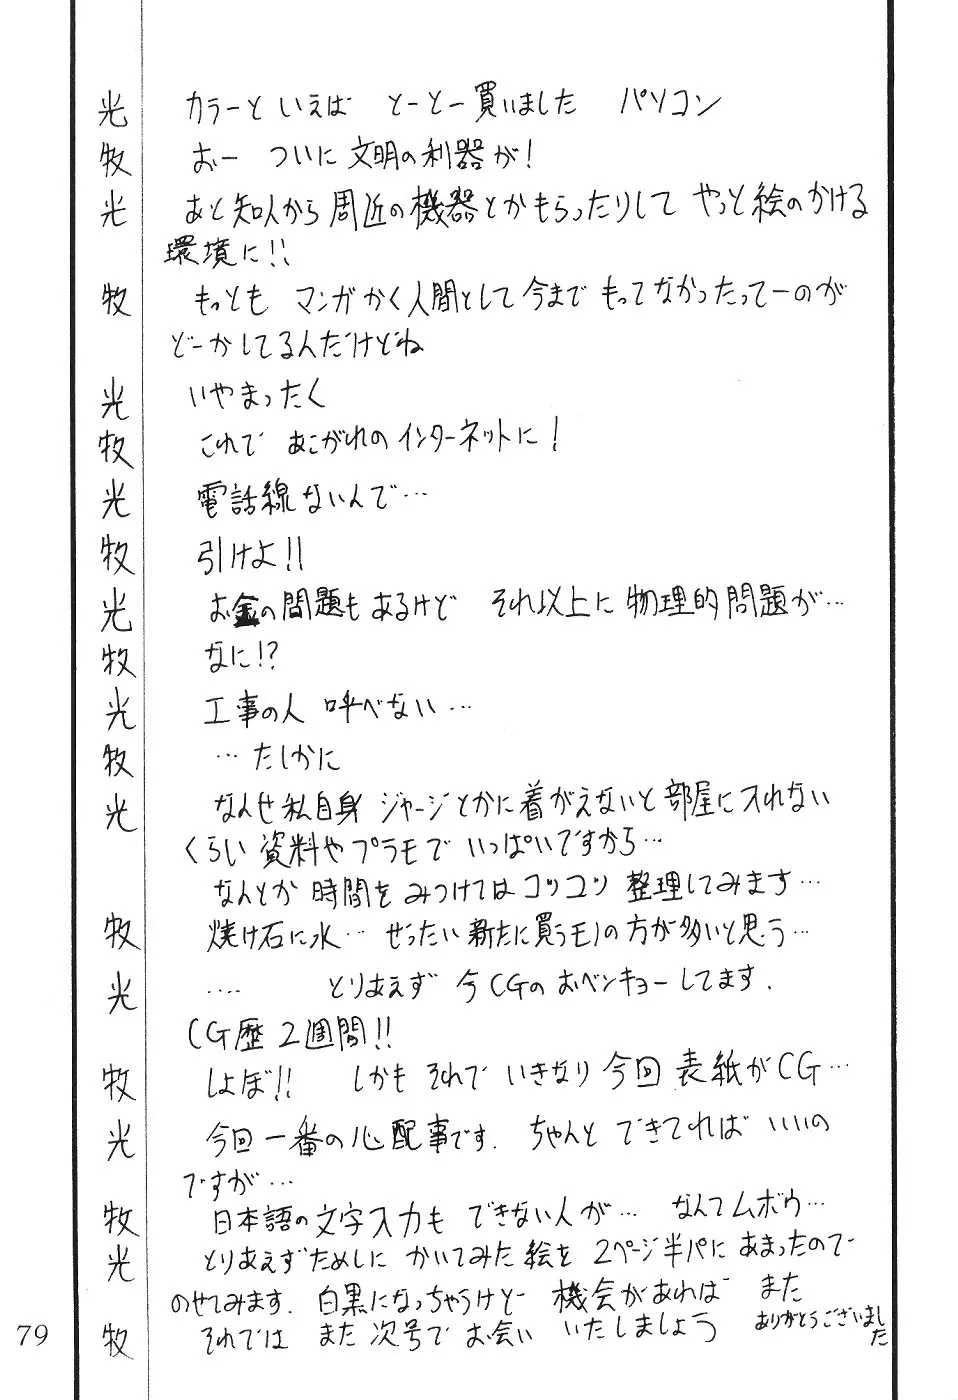 光 カラーと いえば とーとー買いました パソコン
牧 おー ついに 文明の利器が!
光 あと知人から周辺の機器とかもらったりして やっと絵のかける
環境に!!
牧 もっとも マンガかく人間として今まで もってなかったってーのが
どーかしてるんだけどね
光 いやまったく
牧 これで あこがれのインターネットに!
光 電話線ないんで…
牧 引けよ!!
光 お金の問題もあるけど それ以上に物理的問題が…
牧 なに!?
光 工事の人 呼べない…
牧 …たしかに
光 なんせ私自身 ジャージとかに着がえないと部屋に入れない
くらい資料やプラモで いっぱいですから…
なんとか時間をみつけてはコツコツ 整理してみます…
牧 焼け石に水… ぜったい新たに買うモノの方が多いと思う…
光 …. とりあえず 今CGのおベンキョーしてます.
CG歴2週間!!
牧 しょぼ!! しかも それで いきなり今回 表紙がCG…
光 今回一番の心配事です. ちゃんと できてれば いいの
ですが…
牧 日本語の文字入力も できない人が… なんてムボウ…
光 とりあえずためしに かいてみた絵を 2ページ半パにあまったので
のせてみます. 白黒になっちゃうけどー 機会があれば また
牧 それでは また次号で お会い いたしましょう ありがとうございまし
た
79